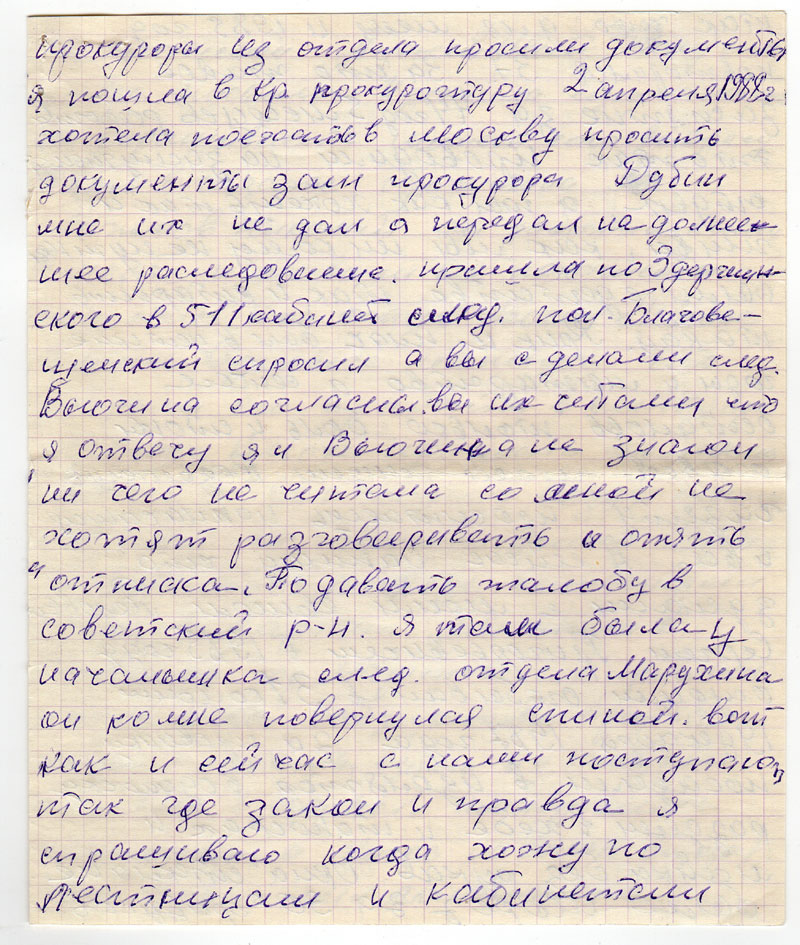 прокуроры из отдела просили документы
я пошла в Кр прокуроттуру 2 апреля 1988г
хотела поехать в Москву просить
документы зам прокурора Дубин
мне их не дал а передал на дальней
шее раследование. пришла по Здержин-
ского в 511 кабинет след. пол. Благове-
щенский спросил а вы с делами след.
Вьючина согласны. вы их читали что
я отвечу я и Вьючина не знаюи
ни чего не читала со мной не
хотят разговаривать и опять
отписка. Подавать жалобу в
советский р-н. я там была у
начальника след. отдела Марухина
он ко мне повернулся спиной. вот
как и сейчас с нами поступают
так где закон и правда я
спрашиваю когда хожу по
лестницам и кабинетам